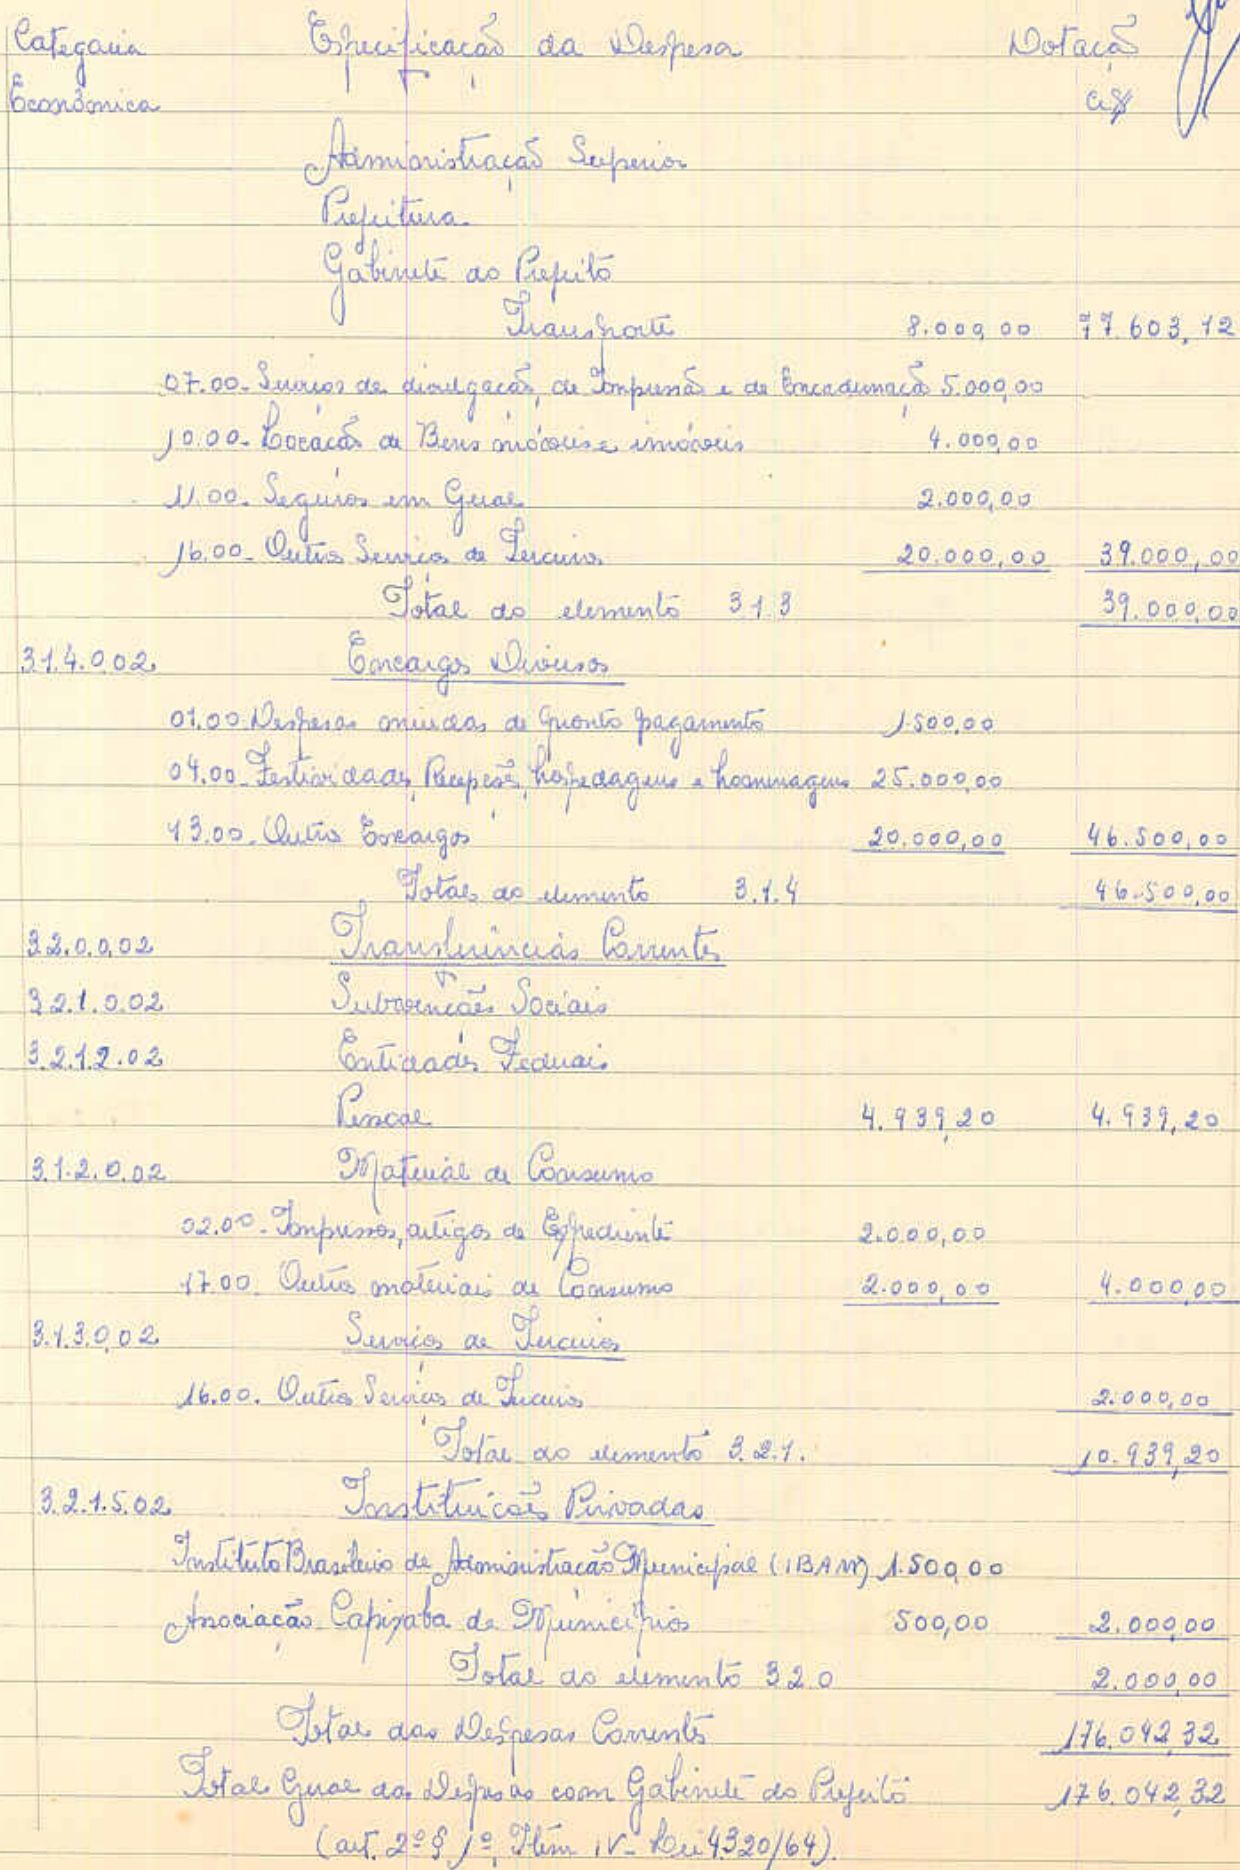 Categoria Especificação da Despesa Dotação
Econômica Cr$
Administração Superior
Prefeitura
Gabinete do Prefeito
Transporte 8.000,00 77.603,12
07.00- Serviços de divulgação, de Impressão e de Encadernação 5.000,00
10.00- Locação de Bens móveis e imóveis 4.000,00
11.00- Seguros em Geral 2.000,00
16.00- Outros Serviços de Terceiros 20.000,00 39.000,00
Total do elemento 3.1.3 39.000,00
3.1.4.0.02 Encargos Diversos
01.00 Despesas miudas de pronto pagamento 1.500,00
04.00- Festividades, Recepções, hospedagens e homenagens 25.000,00
13.00- Outros Encargos 20.000,00 46.500,00
Total do elemento 3.1.4 46.500,00
3.2.0.0.02 Transferências Correntes
3.2.1.0.02 Subvenções Sociais
3.2.1.2.02 Entidades Federais
Pessoal 4.939,20 4.939,20
3.1.2.0.02 Material de Consumo
02.00- Impressos, artigos de Expediente 2.000,00
17.00. Outros materiais de Consumo 2.000,00 4.000,00
3.1.3.0.02 Serviços de Terceiros
16.00. Outros Serviços de Terceiros 2.000,00
Total do elemento 3.2.1. 10.939,20
3.2.1.5.02 Instituições Privadas
Instituto Brasileiro de Administração Municipal (IBAM) 1.500,00
Associação Capixaba de Municípios 500,00 2.000,00
Total do elemento 3.2.0 2.000,00
Total das Despesas Correntes 176.042,32
Total Geral das Despesas com Gabinete do Prefeito 176.042,32
(art. 2º § 1º, Item IV- Lei 4320/64).